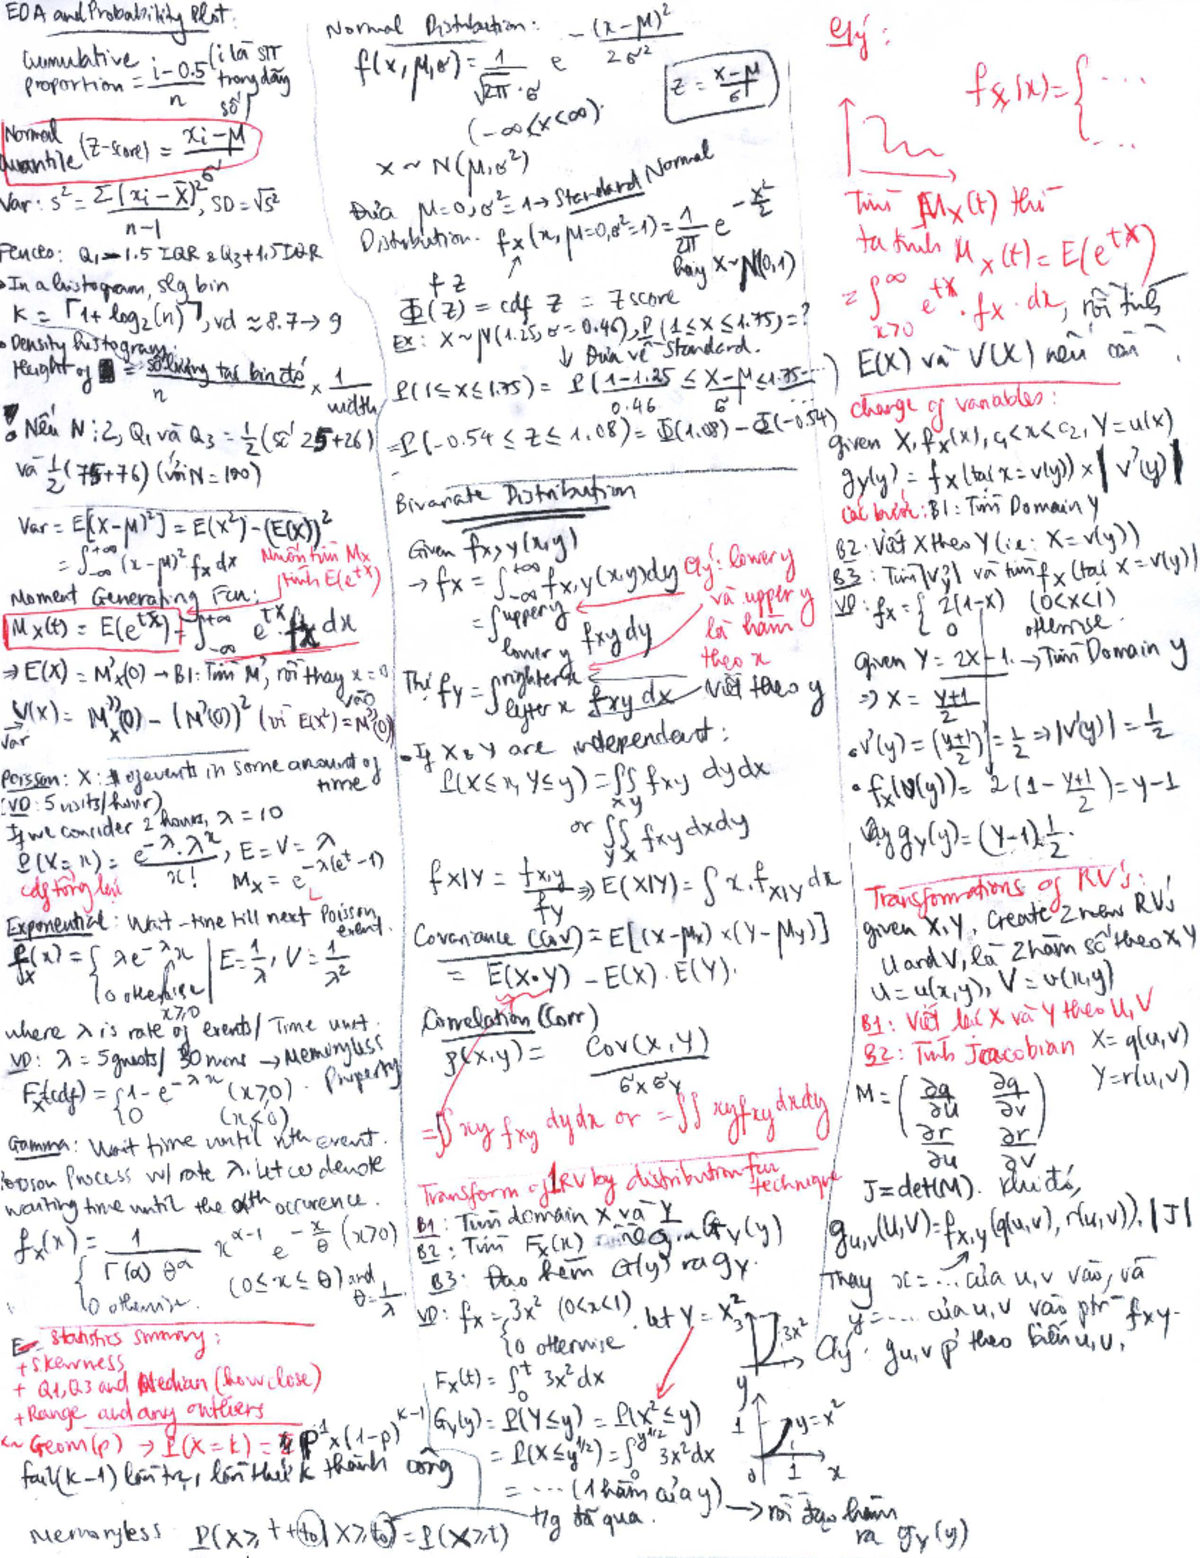 EDA and Probability Plot:
Cumulative proportion = (i - 0.5)/n (i là STT trong dãy số)
Normal Quantile (Z-score) = (xi - μ)/σ
Var: S² = Σ(xi - X̄)²/(n-1), SD = √S²
Fences: Q1 - 1.5 IQR & Q3 + 1.5 IQR
• In a histogram, slg bin
K = ⌈1 + log₂(n)⌉, vd ≈ 8.7 → 9
• Density histogram:
Height of = số lượng tại bin đó/n × 1/width
! Nếu N⋮2, Q1 và Q3 = 1/2 (số 25+26)
và 1/2 (75+76) (với N = 100)
Var = E[(X-μ)²] = E(X²) - (E(X))²
= ∫_{-∞}^{+∞} (x-μ)² fx dx
Muốn tìm Mx tính E(e^{tX})
Moment Generating Fcn:
Mx(t) = E(e^{tX}) = ∫_{-∞}^{+∞} e^{tx} fx dx
⇒ E(X) = M'x(0) → B1: Tìm M', rồi thay x = 0 vào
V(X) = M''x(0) - (M'(0))² (vì E(X²) = M''(0))
Var
Poisson: X: # of events in some amount of time
(VD: 5 visits/hour)
If we consider 2 hours, λ = 10
P(X = x) = e^{-λ}.λ^x/x!, E = V = λ
Mx = e^{-λ(e^t - 1)}
cdf tổng lại
Exponential: Wait-time till next Poisson event.
fx(x) = { λe^{-λx} | E = 1/λ, V = 1/λ²
0 otherwise
x ≥ 0
where λ is rate of events/Time unit.
VD: λ = 5 guests/30 mins → Memoryless Property
Fx(cdf) = { 1 - e^{-λx} (x ≥ 0)
0 (x < 0)
Gamma: Wait time until nth event.
Poisson Process w/ rate λ. Let ω denote
waiting time until the αth occurence.
fx(x) = { 1/(Γ(α) θ^α) x^{α-1} e^{-x/θ} (x>0)
0 otherwise. (0 ≤ x ≤ θ) and θ = 1/λ
Statistics Summary:
+ Skewness
+ Q1, Q3 and Median (how close)
+ Range and any outliers
X ~ Geom(p) → P(X = k) = p¹ × (1-p)^{k-1}
fail (k-1) lần tr, lần thứ k thành công
Memoryless: P(X ≥ t + t₀ | X ≥ t₀) = P(X ≥ t)
t/g đã qua.
Normal Distribution:
f(x, μ, σ) = 1/(√2π . σ) e^{-(x-μ)²/2σ²}
(-∞ < x < ∞)
Z = (x-μ)/σ
X ~ N(μ, σ²)
Đưa μ = 0, σ² = 1 → Standard Normal
Distribution. fx(x, μ=0, σ²=1) = 1/2π e^{-x²/2}
f Z
hay X ~ N(0,1)
Φ(Z) = cdf Z = Zscore
Ex: X ~ N(1.25, σ = 0.46), P(1 ≤ X ≤ 1.75) = ?
↓ Đưa về Standard.
P(1 ≤ X ≤ 1.75) = P((1-1.25)/0.46 ≤ (X-μ)/σ ≤ 1.75-...)
= P(-0.54 ≤ Z ≤ 1.08) = Φ(1.08) - Φ(-0.54)
Bivariate Distribution
Given fx,y(x,y)
→ fx = ∫_{-∞}^{+∞} fx,y(x,y)dy
= ∫_{lower y}^{upper y} fxy dy
Chý: lower y và upper y là hàm theo x
Thì fY = ∫_{lefter x}^{righter x} fxy dx — Viết theo y
• If X & Y are independent:
P(X ≤ x, Y ≤ y) = ∫∫_{x y} fxy dydx
or ∫∫_{y x} fxy dxdy
fX|Y = fx,y/fY ⇒ E(X|Y) = ∫ x.fX|Y dx
Covariance (Cov) = E[(X-μx) × (Y-μy)]
= E(X.Y) - E(X).E(Y).
Correlation (Corr)
ρ(x,y) = Cov(X,Y)/σxσY
= ∫∫ xy fxy dydx or = ∫∫ xy fxy dxdy
Transform of 1 RV by distribution fcn technique
B1: Tìm domain X và Y
B2: Tìm Fx(x) GY(y)
B3: Đạo hàm G(y) ra gY.
VD: fx = { 3x² (0<x<1). Let Y = X²
0 otherwise
3
3x²
Fx(t) = ∫_0^t 3x² dx
GY(y) = P(Y ≤ y) = P(X² ≤ y)
= P(X ≤ y^{1/2}) = ∫_0^{y^{1/2}} 3x² dx
= ... (1 hàm của y) → rồi đạo hàm
ra gY(y)
y
1
y = x²
0 1 x
Chý:
fx(x) = { ...
...
Tìm Mx(t) thì
ta tính Mx(t) = E(e^{tX})
= ∫_{x>0}^{∞} e^{tx}.fx.dx, rồi tính
E(X) và V(X) nếu cần
Change of variables:
given X, fx(x), c₁<x<c₂, Y = u(x)
gY(y) = fx(tại x = v(y)) × |v'(y)|
Các bước: B1: Tìm Domain Y
B2: Viết X theo Y (i.e: X = v(y))
B3: Tìm |v'y| và tìm fx (tại X = v(y))
VD: fx = { 2(1-x) (0<x<1)
0 otherwise.
given Y = 2X - 1. → Tìm Domain y
⇒ X = (y+1)/2
• v'(y) = ((y+1)/2)' = 1/2 ⇒ |v'(y)| = 1/2
• fx(v(y)) = 2(1 - (y+1)/2) = y - 1
Vậy gY(y) = (y-1).1/2.
Transformations of RV's:
given X, Y, Create 2 new RV's
U and V, là 2 hàm số theo X, Y
U = u(x,y), V = v(x,y)
B1: Viết lại X và Y theo U, V
B2: Tính Jacobian X = q(u,v)
Y = r(u,v)
M = (∂q/∂u ∂q/∂v
∂r/∂u ∂r/∂v)
J = det(M). Khi đó,
gu,v(U,V) = fx,y(q(u,v), r(u,v)).|J|
Thay x = ... của u,v vào, và
y = ... của u,v vào ptr fxy.
Chý: gu,v p' theo biến u,v.